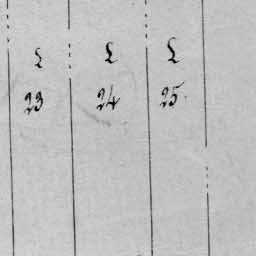 L L L
23 24 25